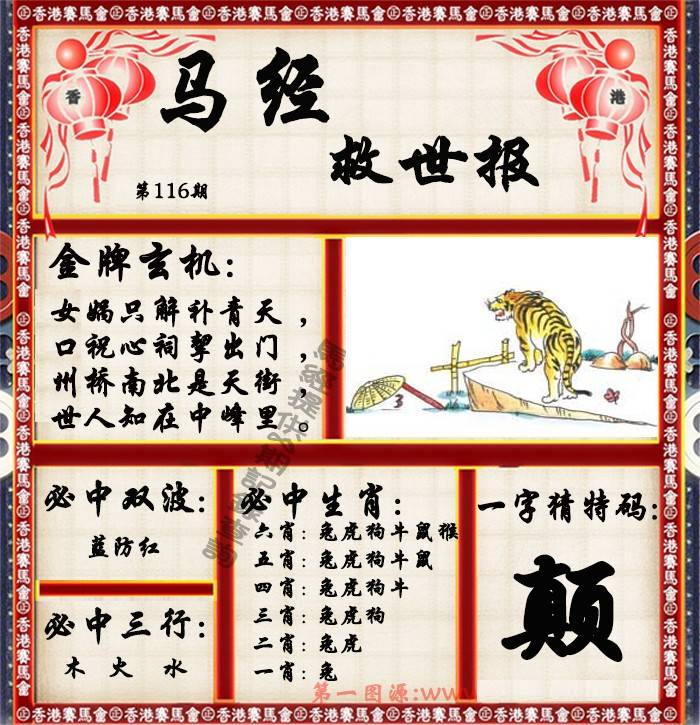 香港賽馬會
香
港
马经
救世报
第116期
金牌玄机:
女娲只解补青天，
口祝心祠挈出门，
州桥南北是天街，
世人知在中峰里。
必中双波:
蓝防红
必中三行:
木 火 水
必中生肖:
六肖: 兔虎狗牛鼠猴
五肖: 兔虎狗牛鼠
四肖: 兔虎狗牛
三肖: 兔虎狗
二肖: 兔虎
一肖: 兔
一字猜特码:
颠
第一图源:www